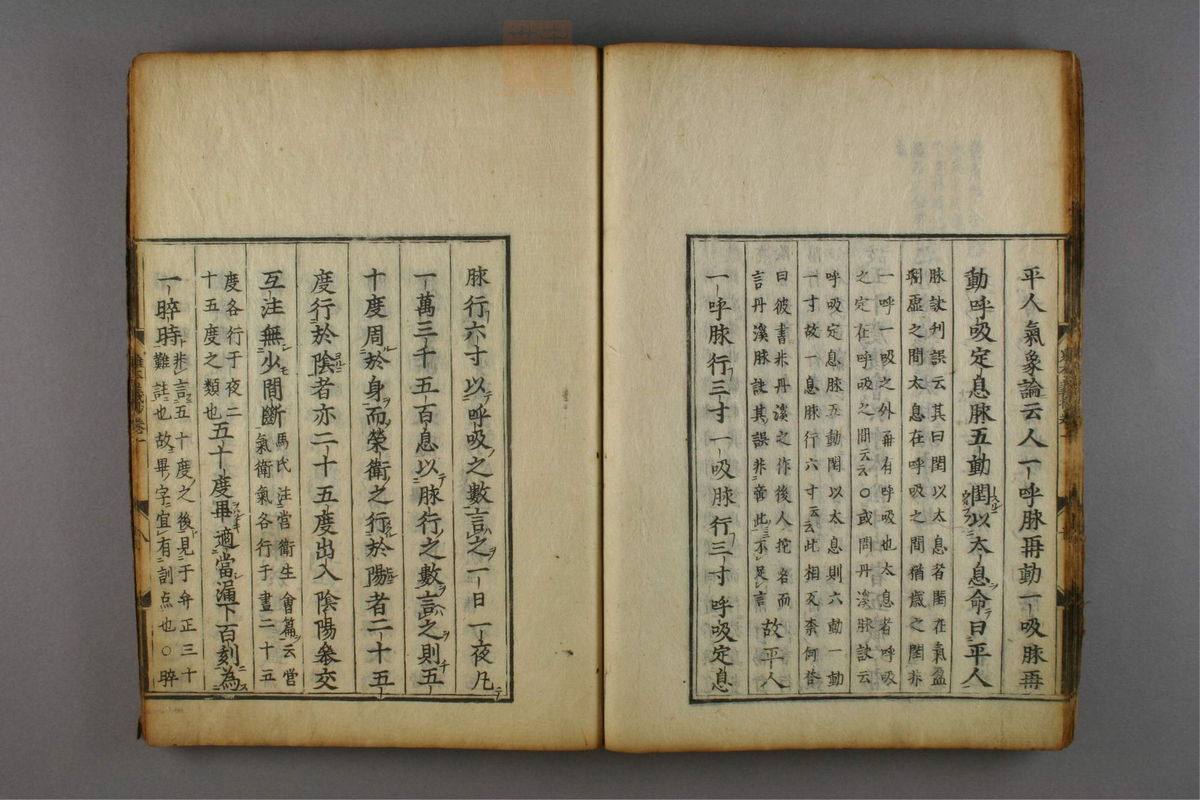 平人氣象論云人一呼脉再動一吸脉再
動呼吸定息脉五動閏以太息命曰平人
脉訣刋誤云其曰閏以太息者閏在氣盈
朔虛之間太息在呼吸之間猶歲之閏非
一呼一吸之外再有呼吸也太息者呼吸
之定在呼吸之間云云〇或問丹溪脉訣云
呼吸定息脉五動閏以太息則六動一動
一寸故一息脉行六寸云云此相反柰何答
曰彼書非丹溪之作後人托名而
言丹溪脉訣其誤非啻此不足言
故平人
一呼脉行三寸一吸脉行三寸呼吸定息
脉行六寸以呼吸之數言之一日一夜凡
一萬三千五百息以脉行之數言之則五
十度周於身而榮衛之行於陽者二十五
度行於陰者亦二十五度出入陰陽參交
互注無少間斷
馬氏注當衛生會篇云營
氣衛氣各行于晝二十五
度各行于夜二
十五度之類也
五十度畢適當漏下百刻為
一晬時
非言五十度之後見于弁正三十
難註也故畢字宜有訓点也〇晬